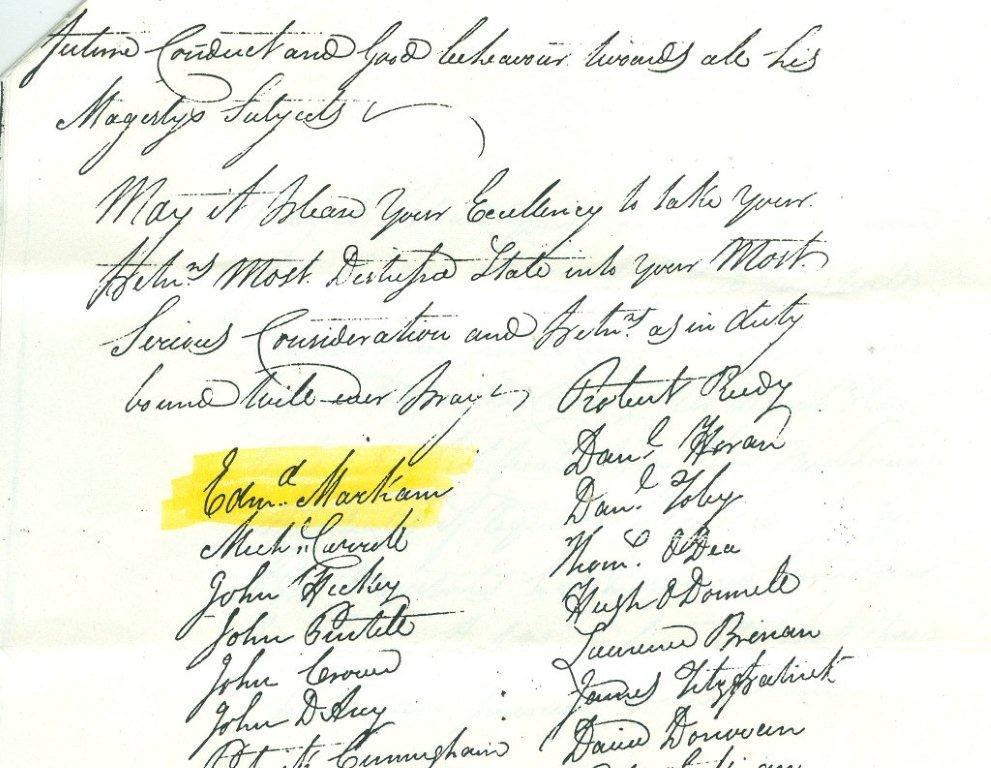 future Conduct and Good behavour towards all his
Magestys Subjects
May it please Your Excellency to take your
Petnrs Most Distressd State into your Most
Serious Consideration and Petnrs as in duty
bound will ever pray
Robert Reidy
Danl Horan
Edmd Markam
Danl Toby
Michl Carroll
Thomas O Dea
John Hickey
Hugh O Donnell
John
Laurence Brenan
John Crowe
James Fitzpatrick
John
David Donovan
Cunningham